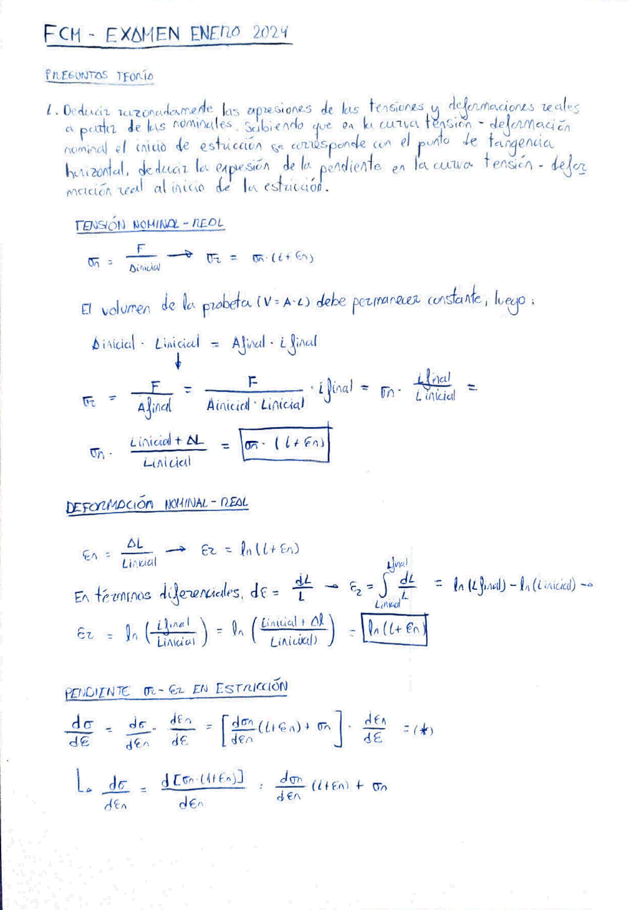 FCM - EXAMEN ENERO 2024
PREGUNTAS TEORÍA
1. Deducir razonadamente las expresiones de las tensiones y deformaciones reales
a partir de las nominales. Sabiendo que en la curva tensión - deformación
nominal el inicio de estricción se corresponde con el punto de tangencia
horizontal, deducir la expresión de la pendiente en la curva tensión - defor
mación real al inicio de la estricción.
TENSIÓN NOMINAL - REAL
σn = F / Ainicial → σr = σn · (1 + εn)
El volumen de la probeta (V = A·L) debe permanecer constante, luego:
Ainicial · Linicial = Afinal · Lfinal
↓
σr = F / Afinal = F / (Ainicial · Linicial) · Lfinal = σn · Lfinal / Linicial =
σn · (Linicial + ΔL) / Linicial = σn · (1 + εn)
DEFORMACIÓN NOMINAL - REAL
εn = ΔL / Linicial → εr = ln(1 + εn)
En términos diferenciales, dε = dL / L → εr = ∫ Linicial Lfinal dL / L = ln(Lfinal) - ln(Linicial) →
εr = ln(Lfinal / Linicial) = ln((Linicial + Δl) / Linicial) = ln(1 + εn)
PENDIENTE σr - εr EN ESTRICCIÓN
dσ/dε = dσ/dεn · dεn/dε = [dσn/dεn (1 + εn) + σn] · dεn/dε = (*)
↳ dσ/dεn = d[σn · (1 + εn)] / dεn = dσn/dεn (1 + εn) + σn